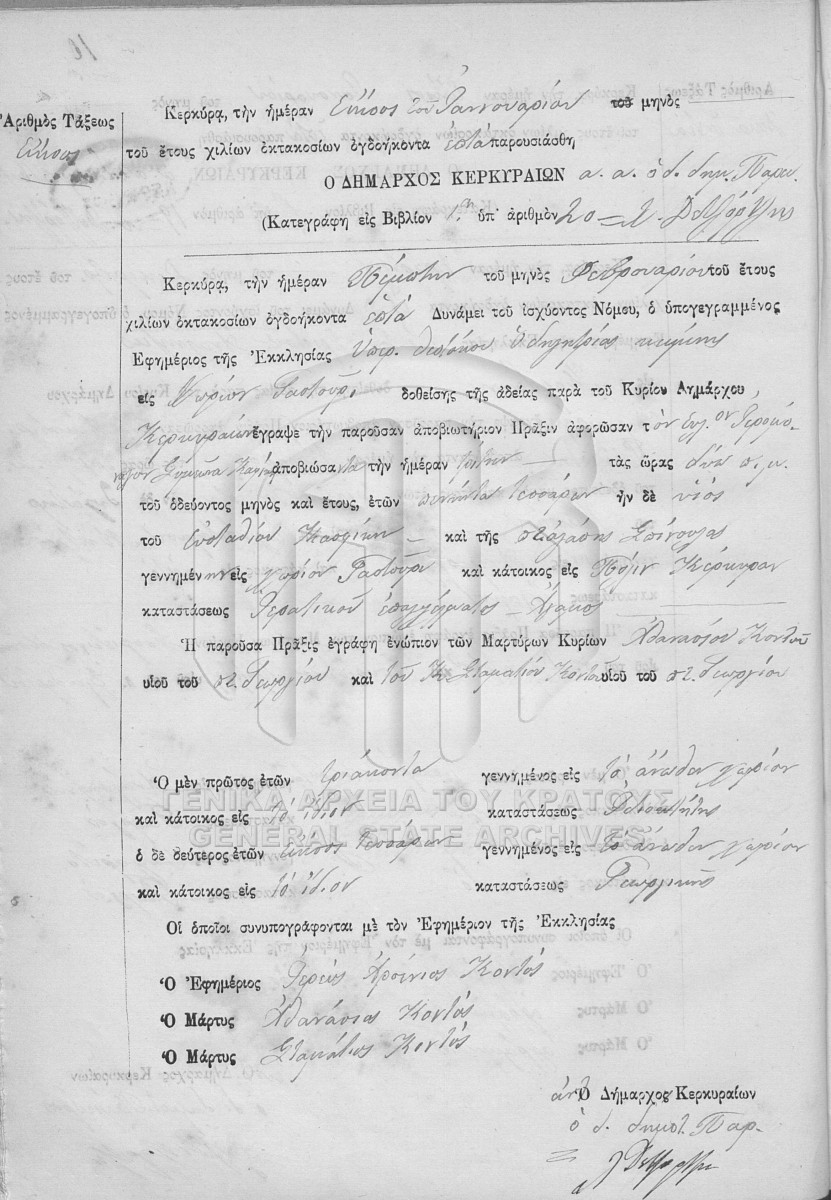 Ἀριθμὸς Τάξεως
Εἴκοσι
Κερκύρα, τὴν ἡμέραν Εἴκοσι τοῦ Ἰαννουαρίου τοῦ μηνὸς
τοῦ ἔτους χιλίων ὀκτακοσίων ὀγδοήκοντα ἑπτὰ παρουσιάσθη
Ο ΔΗΜΑΡΧΟΣ ΚΕΡΚΥΡΑΙΩΝ α. α. ὁ δ. δημ. Παρ.
(Κατεγράφη εἰς Βιβλίον 1ον ὑπ' ἀριθμὸν 20
Κερκύρα, τὴν ἡμέραν Πέμπτην τοῦ μηνὸς Φεβρουαρίου τοῦ ἔτους
χιλίων ὀκτακοσίων ὀγδοήκοντα ἑπτὰ Δυνάμει τοῦ ἰσχύοντος Νόμου, ὁ ὑπογεγραμμένος
Ἐφημέριος τῆς Ἐκκλησίας Ὑπερ. Θεοτόκου Ὁδηγητρίας κειμένης
εἰς χωρίον Γαστοῦρι δοθείσης τῆς ἀδείας παρὰ τοῦ Κυρίου Δημάρχου
Κερκυραίων ἔγραψε τὴν παροῦσαν ἀποβιωτήριον Πρᾶξιν ἀφορῶσαν τὸν Εὐλ.ον Ἱερομό-
ναχον ἀποβιώσαντα τὴν ἡμέραν τρίτην τὰς ὥρας δύω π.μ.
τοῦ ὁδεύοντος μηνὸς καὶ ἔτους, ἐτῶν πενῆντα τεσσάρων ἦν δὲ υἱὸς
τοῦ Εὐσταθίου καὶ τῆς
γεννημένην εἰς χωρίον Γαστοῦρι καὶ κάτοικος εἰς Πόλιν Κέρκυραν
καταστάσεως Ἱερατικοῦ ἐπαγγέλματος
Ἡ παροῦσα Πρᾶξις ἐγράφη ἐνώπιον τῶν Μαρτύρων Κυρίων Ἀθανασίου Κοντοῦ
υἱοῦ τοῦ ποτ. Γεωργίου καὶ τοῦ Κ. Σταματίου Κοντοῦ υἱοῦ τοῦ ποτ. Γεωργίου
Ὁ μὲν πρῶτος ἐτῶν τριάκοντα γεννημένος εἰς τὸ ἄνωθεν χωρίον
καὶ κάτοικος εἰς τὸ ἴδιον καταστάσεως
ὁ δὲ δεύτερος ἐτῶν εἴκοσι τεσσάρων γεννημένος εἰς τὸ ἄνωθεν χωρίον
καὶ κάτοικος εἰς τὸ ἴδιον καταστάσεως Γεωργικῆς
ΓΕΝΙΚΑ ΑΡΧΕΙΑ ΤΟΥ ΚΡΑΤΟΥΣ
GENERAL STATE ARCHIVES
Οἱ ὁποῖοι συνυπογράφονται μὲ τὸν Ἐφημέριον τῆς Ἐκκλησίας
Ὁ Ἐφημέριος Ἱερεὺς Ἀρσένιος Κοντός
Ὁ Μάρτυς Ἀθανάσιος Κοντός
Ὁ Μάρτυς Σταμάτιος Κοντός
Ὁ Δήμαρχος Κερκυραίων
ὁ δ. δημοτ. Παρ.